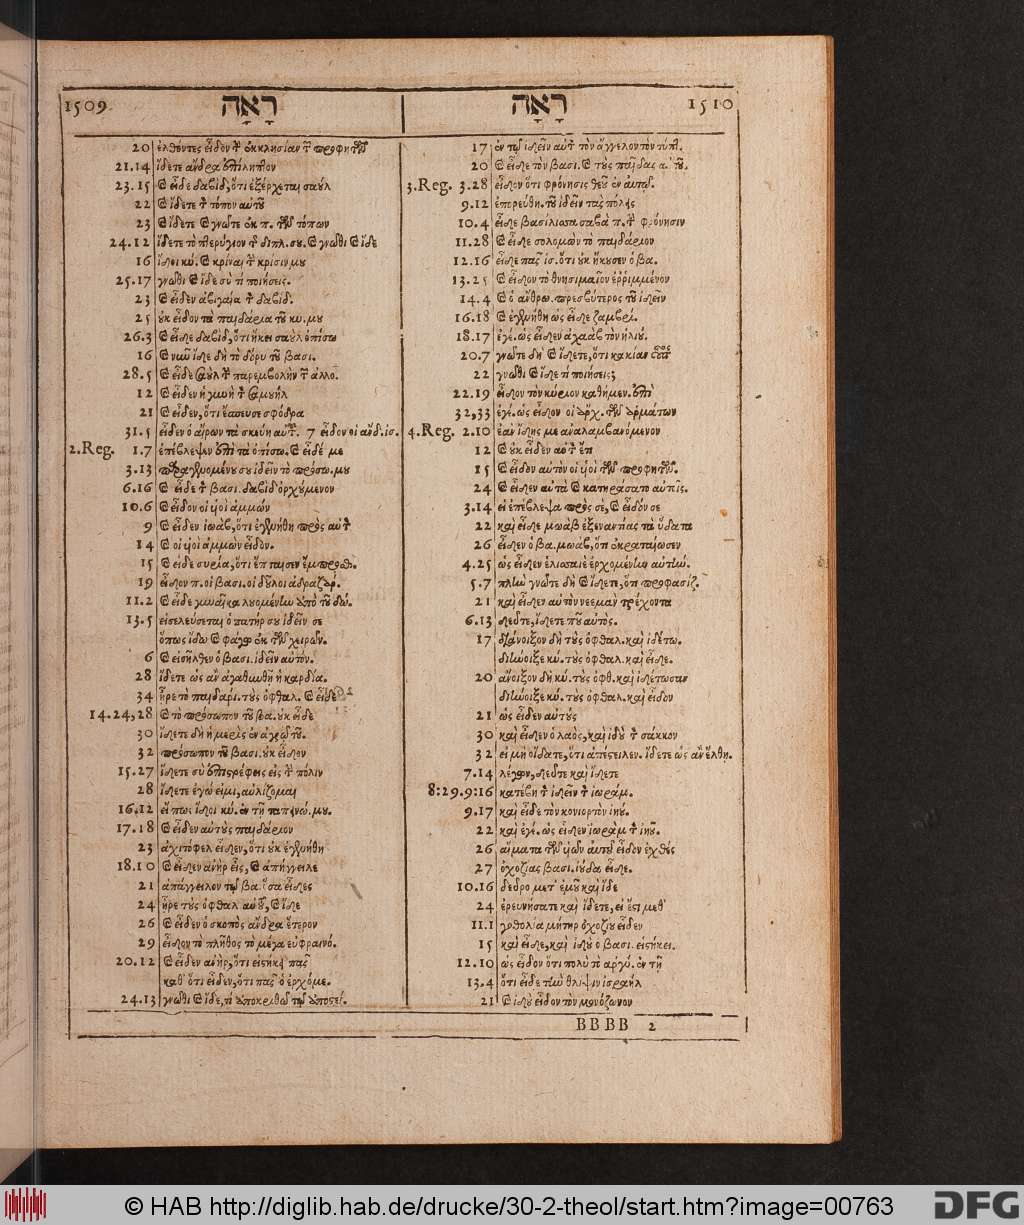 1509 רָאָה
20 ἐλθόντες εἶδον τ̀ ἐκκλησίαν τ̃ προφητῶν
21.14 ἴδετε ἄνδρα ἐπίληπτον
23.15 καὶ εἶδε δαβὶδ, ὅτι ἐξέρχεται σαοὺλ
22 καὶ ἴδετε τ̀ τόπον αὐτοῦ
23 καὶ ἴδετε καὶ γνῶτε ἐκ π. τῶν τόπων
24.12 ἴδετε τὸ πτερύγιον τ̃ διπλ. σου. καὶ γνῶθι καὶ ἴδε
16 ἴδοι κύ. καὶ κρίναι τ̀ κρίσιν μου
25.17 γνῶθι καὶ ἴδε σὺ τί ποιήσεις.
23 καὶ εἶδεν ἀβιγαία τ̀ δαβίδ.
25 οὐκ εἶδον τὰ παιδάρια τοῦ κυ. μου
26.3 καὶ εἶδε δαβὶδ, ὅτι ἥκει σαοὺλ ὀπίσω
16 καὶ νῦν ἴδε δὴ τὸ δόρυ τοῦ βασι.
28.5 καὶ εἶδε σαοὺλ τ̀ παρεμβολὴν τ̃ ἀλλο.
12 καὶ εἶδεν ἡ γυνὴ τ̀ σαμουὴλ
21 καὶ εἶδεν, ὅτι ἔσπευσε σφόδρα
31.5 εἶδεν ὁ αἴρων τὰ σκεύη αὐτ. 7 εἶδον οἱ ἄνδ. ἰσ.
2.Reg. 1.7 ἐπέβλεψεν ἐπὶ τὰ ὀπίσω. καὶ εἶδέ με
3.13 παραγενομένου σου ἰδεῖν τὸ πρόσω. μου
6.16 καὶ εἶδε τ̀ βασι. δαβὶδ ὀρχούμενον
10.6 καὶ εἶδον οἱ υἱοὶ ἀμμών
9 καὶ εἶδεν ἰωὰβ, ὅτι ἐγενήθη πρὸς αὐτ̀
14 καὶ οἱ υἱοὶ ἀμμὼν εἶδον.
15 καὶ εἶδε συρία, ὅτι ἔπταισεν ἔμπροσθ.
19 εἶδον π. οἱ βασι. οἱ δοῦλοι ἀδραζάρ.
11.2 καὶ εἶδε γυναῖκα λουομένην ἀπὸ τοῦ δώ.
13.5 εἰσελεύσεται ὁ πατήρ σου ἰδεῖν σε
ὅπως ἴδω καὶ φάγω ἐκ τῶν χειρῶν.
6 καὶ εἰσῆλθεν ὁ βασι. ἰδεῖν αὐτόν.
28 ἴδετε ὡς ἂν ἀγαθυνθῇ ἡ καρδία.
34 ἦρε τὸ παιδάρι. τοὺς ὀφθαλ. καὶ εἶδε
14.24,28 καὶ τὸ πρόσωπον τοῦ βα. οὐκ εἶδε
30 ἴδετε δὴ ἡ μερὶς ἐν ἀγρῷ τοῦ.
32 πρόσωπον τοῦ βασι. οὐκ εἶδον
15.27 ἴδετε σὺ ἐπιστρέφεις εἰς τ̀ πόλιν
28 ἴδετε ἐγώ εἰμι, αὐλίζομαι
16.12 εἴ πως ἴδοι κύ. ἐν τῇ ταπεινώ. μου.
17.18 καὶ εἶδεν αὐτοὺς παιδάριον
23 ἀχιτόφελ εἶδεν, ὅτι οὐκ ἐγενήθη
18.10 καὶ εἶδεν ἀνὴρ εἷς, καὶ ἀπήγγειλε
21 ἀπάγγειλον τῷ βα. ὅσα εἶδες
24 ἦρε τοὺς ὀφθαλ αὐτοῦ, καὶ ἴδε
26 καὶ εἶδεν ὁ σκοπὸς ἄνδρα ἕτερον
29 εἶδον τὸ πλῆθος τὸ μέγα εὐφραινό.
20.12 καὶ εἶδεν ἀνὴρ, ὅτι εἱστήκει πᾶς
καθ' ὅτι εἶδεν, ὅτι πᾶς ὁ ἐρχόμε.
24.13 γνῶθι καὶ ἴδε, τί ἀποκριθῶ τῷ ἀποστεί.
רָאָה 1510
17 ἐν τῷ ἰδεῖν αὐτ̀ τὸν ἄγγελον τὸν τύπτ.
20 καὶ εἶδε τὸν βασι. καὶ τοὺς παῖδας αὐτοῦ.
3.Reg. 3.28 εἶδον ὅτι φρόνησις θεοῦ ἐν αὐτῷ.
9.12 ἐπορεύθη. τοῦ ἰδεῖν τὰς πόλεις
10.4 εἶδε βασίλισσα σαβὰ π. τ̀ φρόνησιν
11.28 καὶ εἶδε σολομὼν τὸ παιδάριον
12.16 εἶδε πᾶς ἰσ. ὅτι οὐκ ἤκουσεν ὁ βα.
13.25 καὶ εἶδον τὸ θνησιμαῖον ἐρριμμένον
14.4 καὶ ὁ ἄνθρω. πρεσβύτερος τοῦ ἰδεῖν
16.18 καὶ ἐγενήθη ὡς εἶδε ζαμβρί.
18.17 ἐγέ. ὡς εἶδεν ἀχαὰβ τὸν ἠλιού.
20.7 γνῶτε δὴ καὶ ἴδετε, ὅτι κακίαν οὗτος
22 γνῶθι καὶ ἴδε τί ποιήσεις;
22.19 εἶδον τὸν κύριον καθήμεν. ἐπὶ
32,33 ἐγέ. ὡς εἶδον οἱ ἄρχ. τῶν ἁρμάτων
4.Reg. 2.10 ἐὰν ἴδῃς με ἀναλαμβανόμενον
12 καὶ οὐκ εἶδεν αὐτ̀ ἔτι
15 καὶ εἶδον αὐτὸν οἱ υἱοὶ τῶν προφητῶν.
24 καὶ εἶδεν αὐτὰ καὶ κατηράσατο αὐτοῖς.
3.14 εἰ ἐπέβλεψα πρὸς σὲ, καὶ εἶδόν σε
22 καὶ εἶδε μωὰβ ἐξεναντίας τὰ ὕδατα
26 εἶδεν ὁ βα. μωὰβ, ὅτι ἐκραταίωσεν
4.25 ὡς εἶδεν ἐλισσαιὲ ἐρχομένην αὐτήν.
5.7 πλὴν γνῶτε δὴ καὶ ἴδετε, ὅτι προφασίζ.
21 καὶ εἶδεν αὐτὸν νεεμὰν τρέχοντα
6.13 δεῦτε, ἴδετε ποῦ αὐτὸς.
17 διάνοιξον δὴ τοὺς ὀφθαλ. καὶ ἰδέτω.
διήνοιξε κύ. τοὺς ὀφθαλ. καὶ εἶδε.
20 ἄνοιξον δὴ κύ. τοὺς ὀφθ. καὶ ἰδέτωσαν
διήνοιξε κύ. τοὺς ὀφθαλ. καὶ εἶδον
21 ὡς εἶδεν αὐτοὺς
30 καὶ εἶδεν ὁ λαὸς, καὶ ἰδοὺ τ̀ σάκκον
32 εἰ μὴ οἴδατε, ὅτι ἀπέστειλεν. ἴδετε ὡς ἂν ἔλθῃ.
7.14 λέγων, δεῦτε καὶ ἴδετε
8:29.9:16 κατέβη τ̃ ἰδεῖν τ̀ ἰωράμ.
9.17 καὶ εἶδε τὸν κονιορτὸν ἰηού.
22 καὶ ἐγέ. ὡς εἶδεν ἰωρὰμ τ̀ ἰηοῦ.
26 αἵματα τῶν υἱῶν αὐτοῦ εἶδον ἐχθές
27 ὀχοζίας βασι. ἰούδα εἶδε.
10.16 δεῦρο μετ' ἐμοῦ καὶ ἴδε
24 ἐρευνήσατε καὶ ἴδετε, εἰ ἔστι μεθ'
11.1 γοθολία μήτηρ ὀχοζίου εἶδεν
15 καὶ εἶδε, καὶ ἰδοὺ ὁ βασι. εἱστήκει.
12.10 ὡς εἶδον ὅτι πολὺ τὸ ἀργύ. ἐν τῇ
13.4 ὅτι εἶδε τὴν θλῖψιν ἰσραὴλ
21 καὶ ἰδοὺ εἶδον τὸν μονόζωνον
BBBB 2
© HAB http://diglib.hab.de/drucke/30-2-theol/start.htm?image=00763
DFG